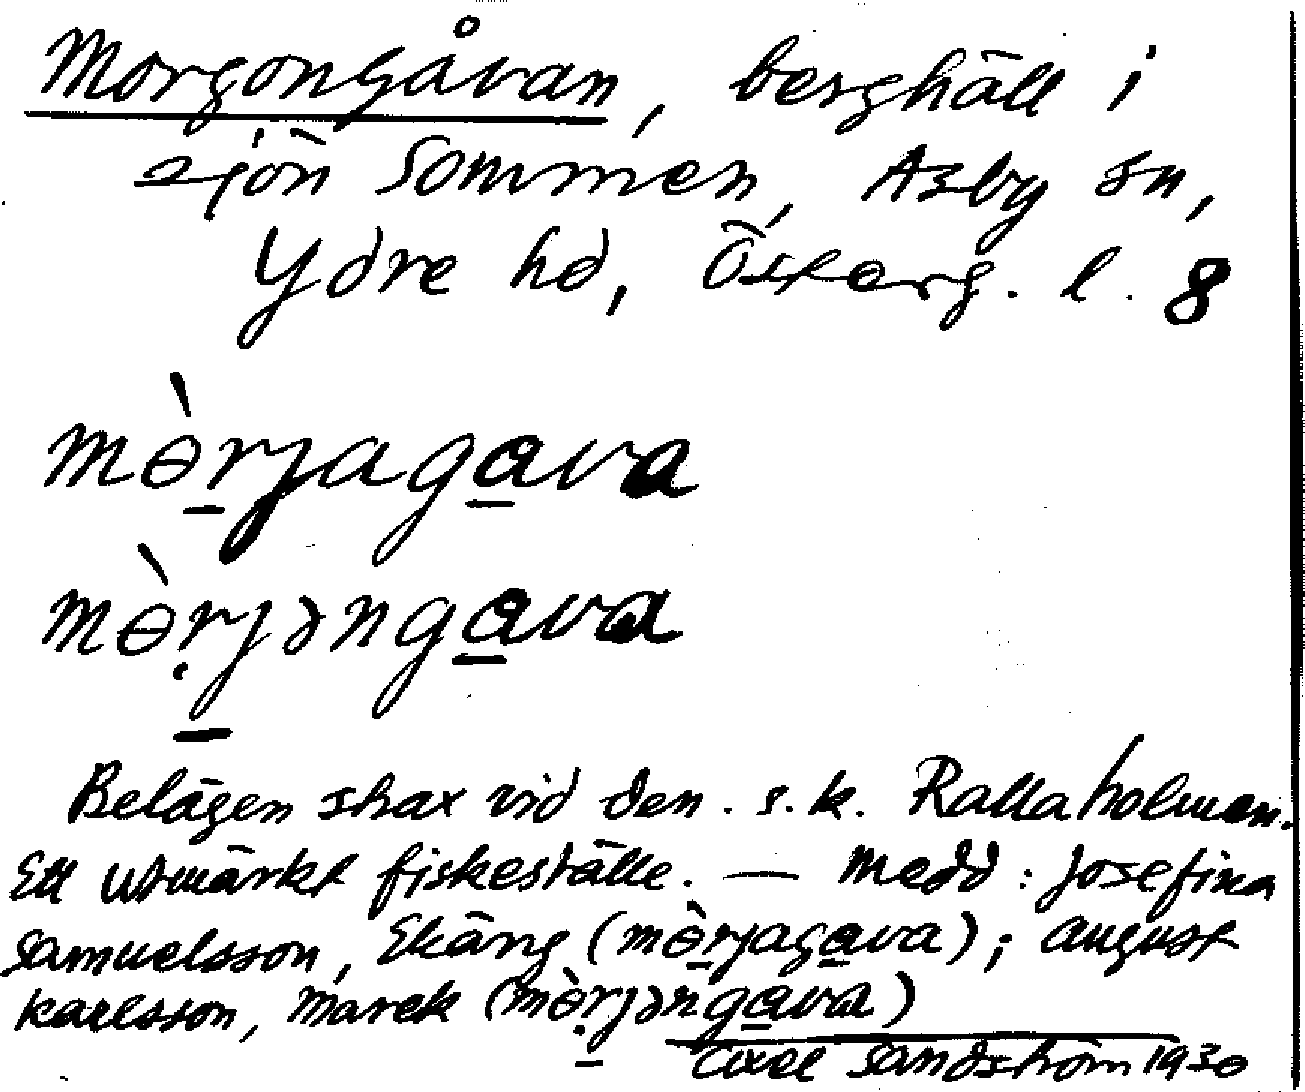 Morgongåvan, berghäll i
sjön Sommen, Asby sn,
Ydre hd, Österg. l. 8
mɵ̀rjagava
mɵ̀rjəngava
Belägen strax vid den s.k. Rallaholmen.
Ett utmärkt fiskeställe. — Medd: Josefina
Samuelsson, Ekäng (mɵ̀rjagava); August
Karlsson, Marek (mɵ̀rjəngava)
Axel Sandström 1930